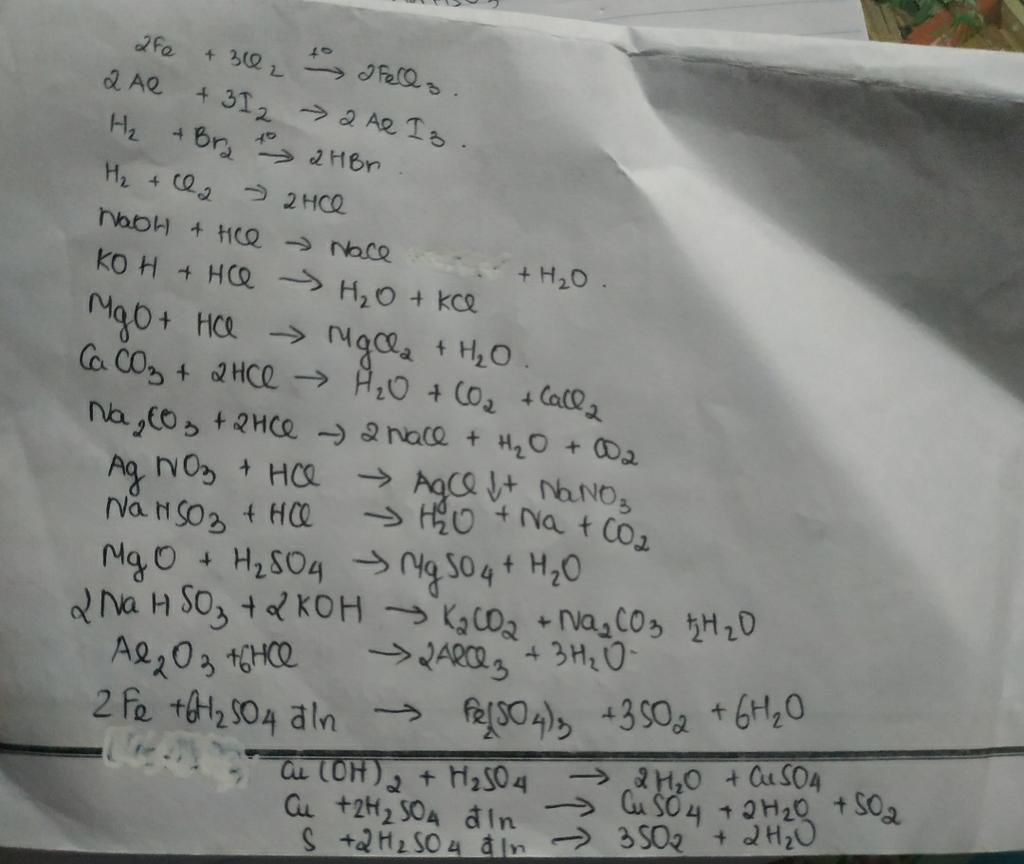 2Fe + 3Cl₂ t° → 2FeCl₃.
2Al + 3I₂ → 2AlI₃.
H₂ + Br₂ t° → 2HBr.
H₂ + Cl₂ → 2HCl
NaOH + HCl → NaCl + H₂O.
KOH + HCl → H₂O + KCl
MgO + HCl → MgCl₂ + H₂O.
CaCO₃ + 2HCl → H₂O + CO₂ + CaCl₂
Na₂CO₃ + 2HCl → 2NaCl + H₂O + CO₂
AgNO₃ + HCl → AgCl↓ + NaNO₃
NaHSO₃ + HCl → H₂O + Na + CO₂
MgO + H₂SO₄ → MgSO₄ + H₂O
2NaHSO₃ + 2KOH → K₂CO₂ + Na₂CO₃ + 2H₂O
Al₂O₃ + 6HCl → 2AlCl₃ + 3H₂O
2Fe + 6H₂SO₄ đ/n → Fe₂(SO₄)₃ + 3SO₂ + 6H₂O
Cu(OH)₂ + H₂SO₄ → 2H₂O + CuSO₄
Cu + 2H₂SO₄ đ/n → CuSO₄ + 2H₂O + SO₂
S + 2H₂SO₄ đ/n → 3SO₂ + 2H₂O